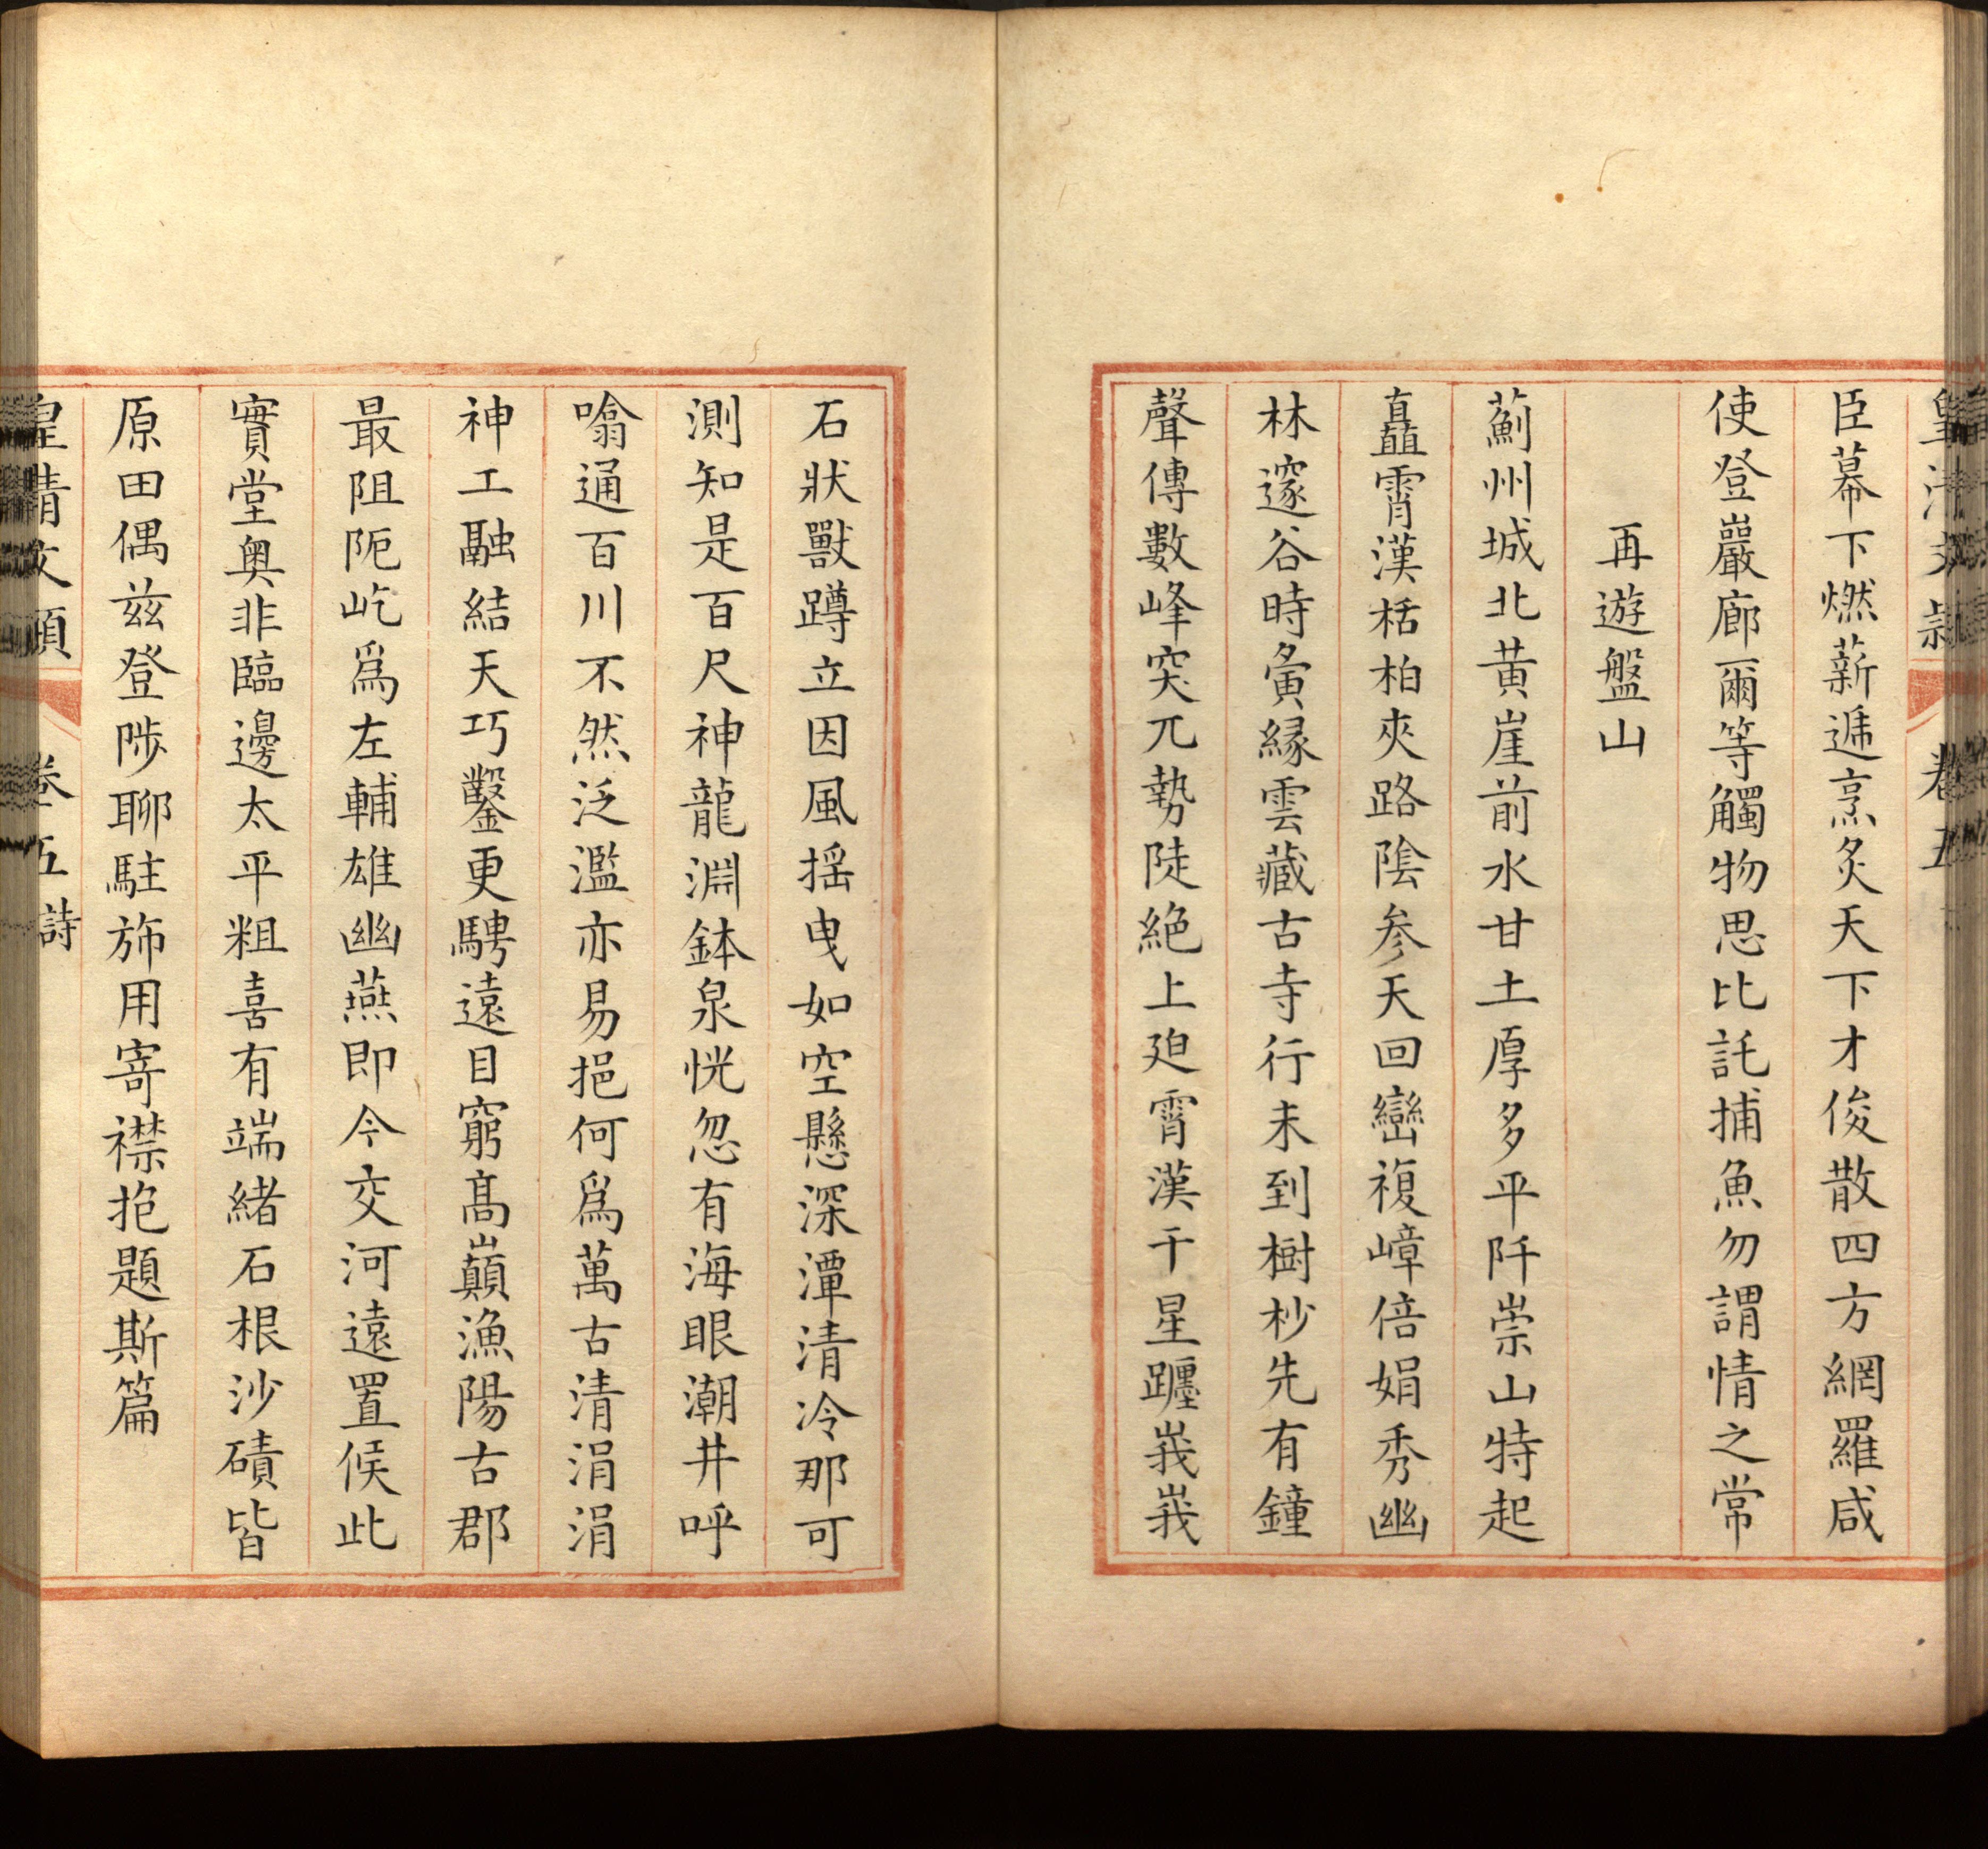 皇清文穎 卷五
臣幕下燃薪遞烹炙天下才俊散四方網羅咸
使登巖廊爾等觸物思比託捕魚勿謂情之常
再遊盤山
薊州城北黃崖前水甘土厚多平阡崇山特起
矗霄漢栝柏夾路陰参天回巒複嶂倍娟秀幽
林邃谷時夤緣雲藏古寺行未到樹杪先有鐘
聲傳數峰突兀勢陡絕上廹霄漢干星躔峩峩
石狀獸蹲立因風搖曳如空懸深潭清冷那可
測知是百尺神龍淵鉢泉恍忽有海眼潮井呼
噏通百川不然泛濫亦易挹何爲萬古清涓涓
神工融結天巧鑿更騁遠目窮高巔漁陽古郡
最阻阨屹爲左輔雄幽燕即今交河遠置候此
實堂奥非臨邊太平粗喜有端緒石根沙磧皆
原田偶兹登陟聊駐斾用寄襟抱題斯篇
皇清文穎 卷五 詩